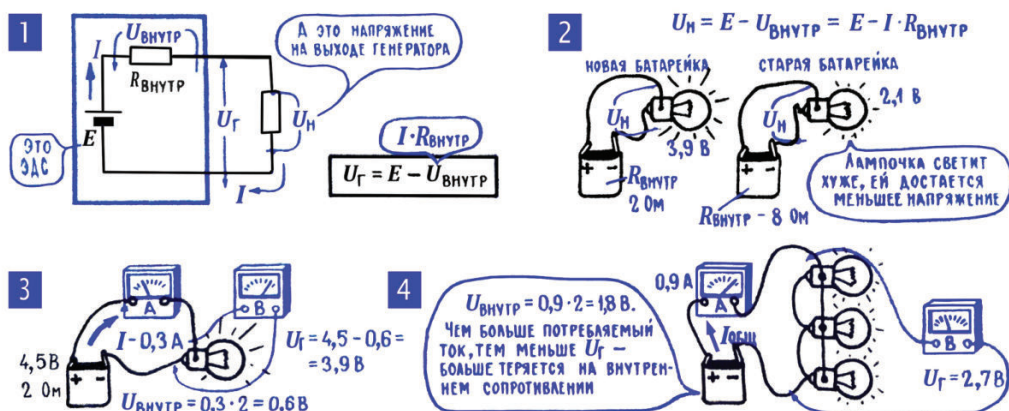 1
U внутр
I
R внутр
E
ЭТО
ЭДС
U г
U н
I
А ЭТО НАПРЯЖЕНИЕ
НА ВЫХОДЕ ГЕНЕРАТОРА
I·R внутр
U г = E – U внутр
2
U н = E – U внутр = E – I·R внутр
НОВАЯ БАТАРЕЙКА
U н
3,9 В
+ –
R внутр
2 Ом
СТАРАЯ БАТАРЕЙКА
2,1 В
U н
+ –
R внутр – 8 Ом
ЛАМПОЧКА СВЕТИТ
ХУЖЕ, ЕЙ ДОСТАЕТСЯ
МЕНЬШЕЕ НАПРЯЖЕНИЕ
3
А
В
I – 0,3 А
4,5 В
2 Ом
+ –
U г = 4,5 – 0,6 =
= 3,9 В
U внутр = 0,3 · 2 = 0,6 В
4
U внутр = 0,9 · 2 = 1,8 В.
ЧЕМ БОЛЬШЕ ПОТРЕБЛЯЕМЫЙ
ТОК, ТЕМ МЕНЬШЕ U г –
БОЛЬШЕ ТЕРЯЕТСЯ НА ВНУТРЕН-
НЕМ СОПРОТИВЛЕНИИ
0,9 А
А
I общ
+ –
В
U г = 2,7 В